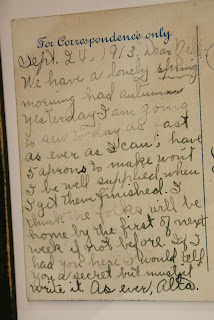 For Correspondence only
Sept. 24, 1913, Dear
We have a lovely spring
morning had autumn
yesterday I am going
to sew to-day as fast
as ever as I can, have
5 aprons to make won't
I be well supplied when
I get them finished. I
think the folks will be
home by the first of next
week if not before. If I
had you here I would tell
you a secret but mustn't
write it. As ever, Alta.